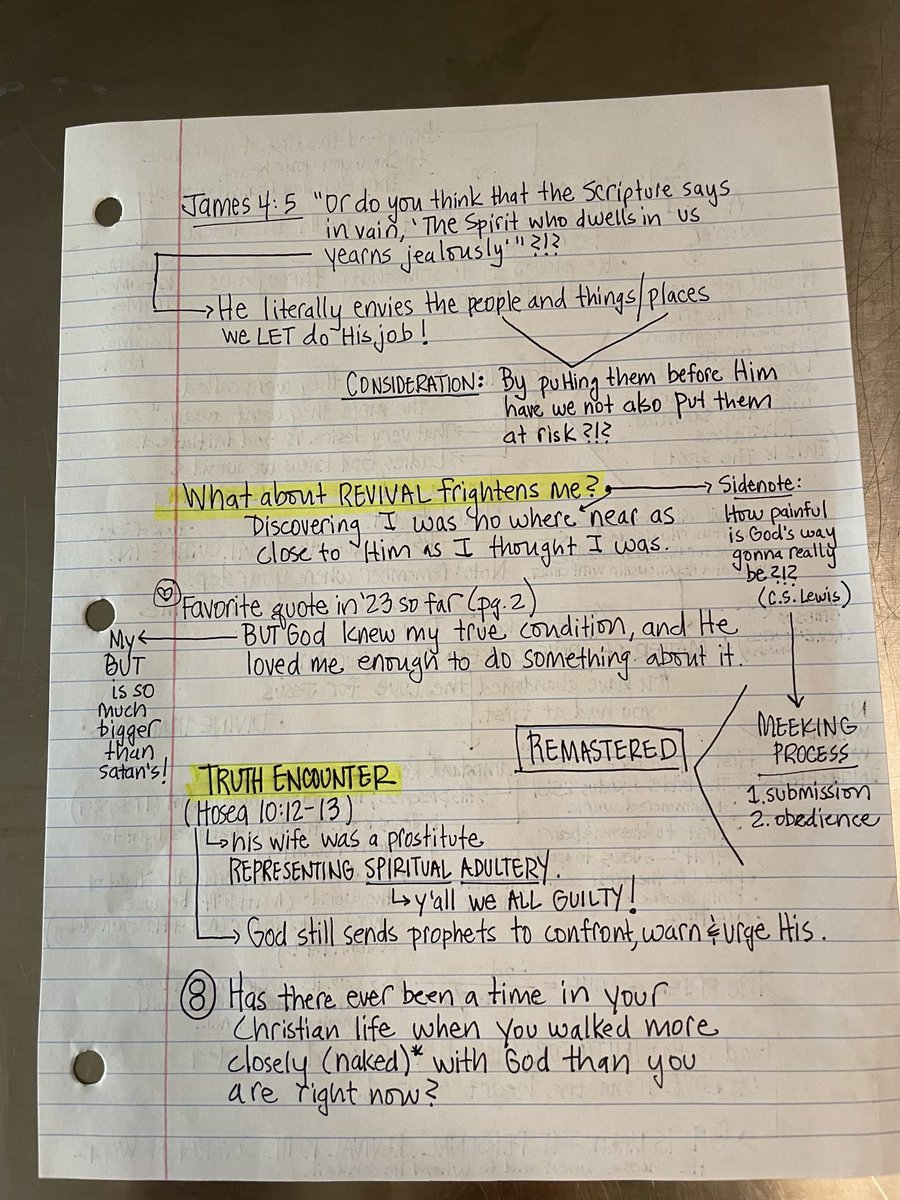 James 4:5 "Or do you think that the Scripture says
in vain, 'The Spirit who dwells in us
yearns jealously'"?!?
He literally envies the people and things/places
we LET do His job!
CONSIDERATION: By putting them before Him
have we not also put them
at risk?!?
What about REVIVAL frightens me?
Discovering I was no where near as
close to Him as I thought I was.
Sidenote:
How painful
is God's way
gonna really
be?!?
(C.S. Lewis)
Favorite quote in '23 so far (pg. 2)
BUT God knew my true condition, and He
loved me enough to do something about it.
My
BUT
is so
much
bigger
than
satan's!
REMASTERED
MEEKING
PROCESS
1. submission
2. obedience
TRUTH ENCOUNTER
(Hosea 10:12-13)
his wife was a prostitute
REPRESENTING SPIRITUAL ADULTERY.
y'all we ALL GUILTY!
God still sends prophets to confront, warn & urge His.
8 Has there ever been a time in your
Christian life when you walked more
closely (naked)* with God than you
are right now?